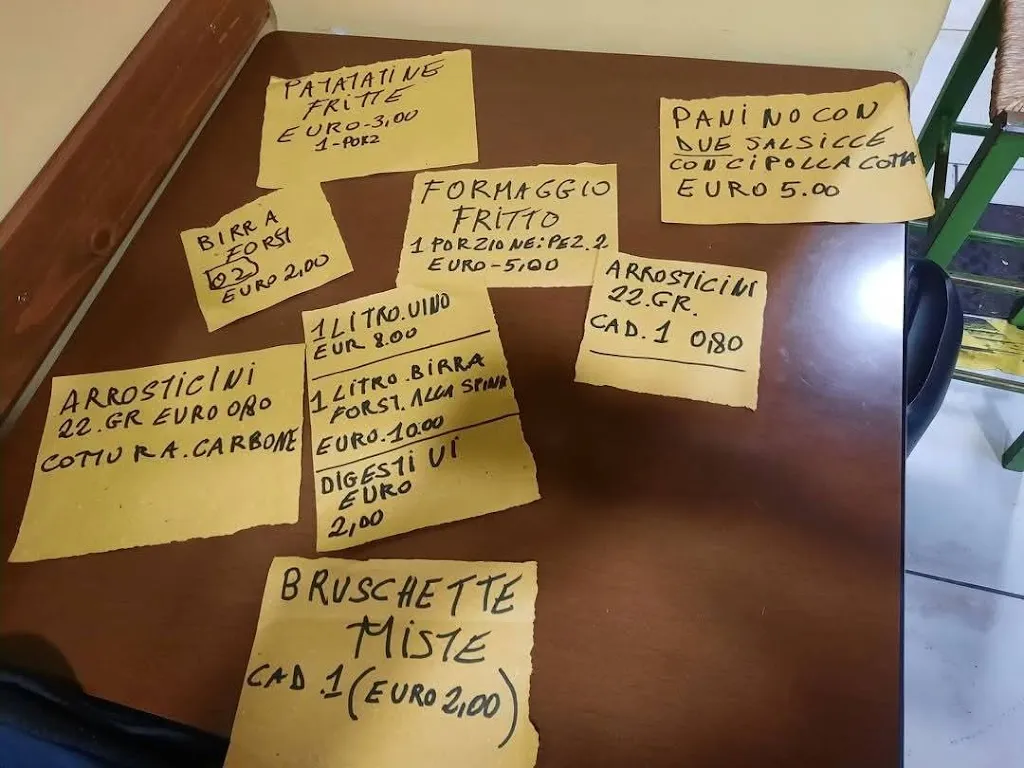 PATATATINE
FRITTE
EURO-3,00
1-PORZ
PANINO CON
DUE SALSICCE
CON CIPOLLA COTTA
EURO 5.00
FORMAGGIO
FRITTO
1 PORZIONE: PEZ. 2
EURO-5,00
BIRRA
FORST
02
EURO 2,00
ARROSTICINI
22.GR.
CAD. 1 0,80
1 LITRO.VINO
EUR 8.00
1 LITRO.BIRRA
FORST.ALLA SPINA
EURO.10.00
DIGESTIVI
EURO
2,00
ARROSTICINI
22.GR EURO 0,80
COTTURA.CARBONE
BRUSCHETTE
MISTE
CAD.1 (EURO 2,00)